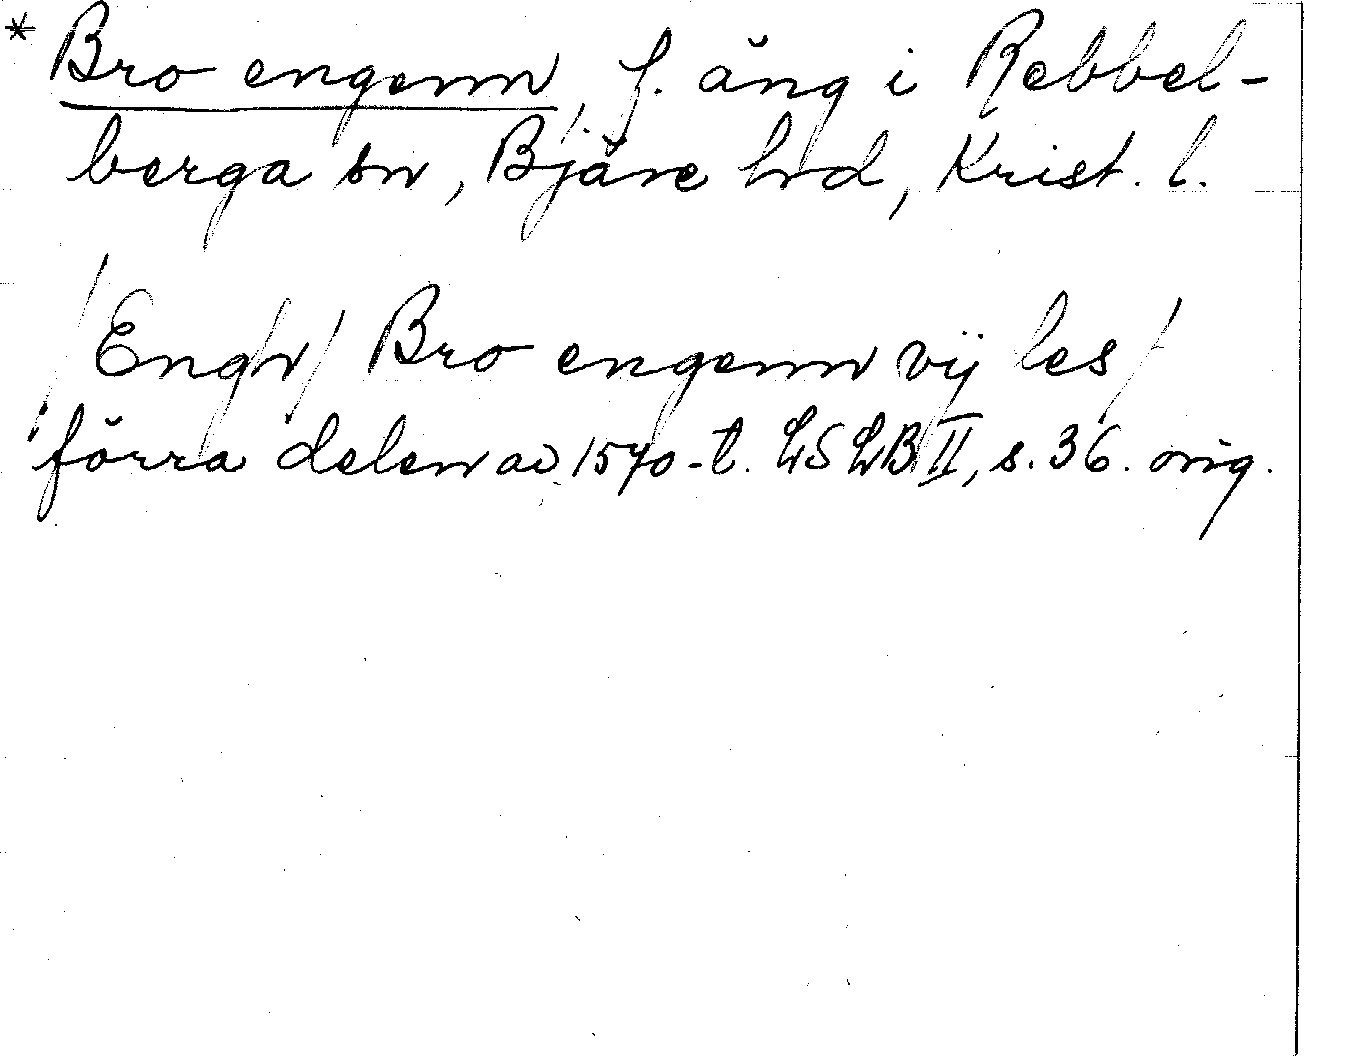 * Bro engenn, f. äng i Rebbel-
berga sn, Bjäre hrd, Krist. l.
/Engh/ Bro engenn vij les/
förra delen av 1570-t. LSLB II, s. 36. orig.